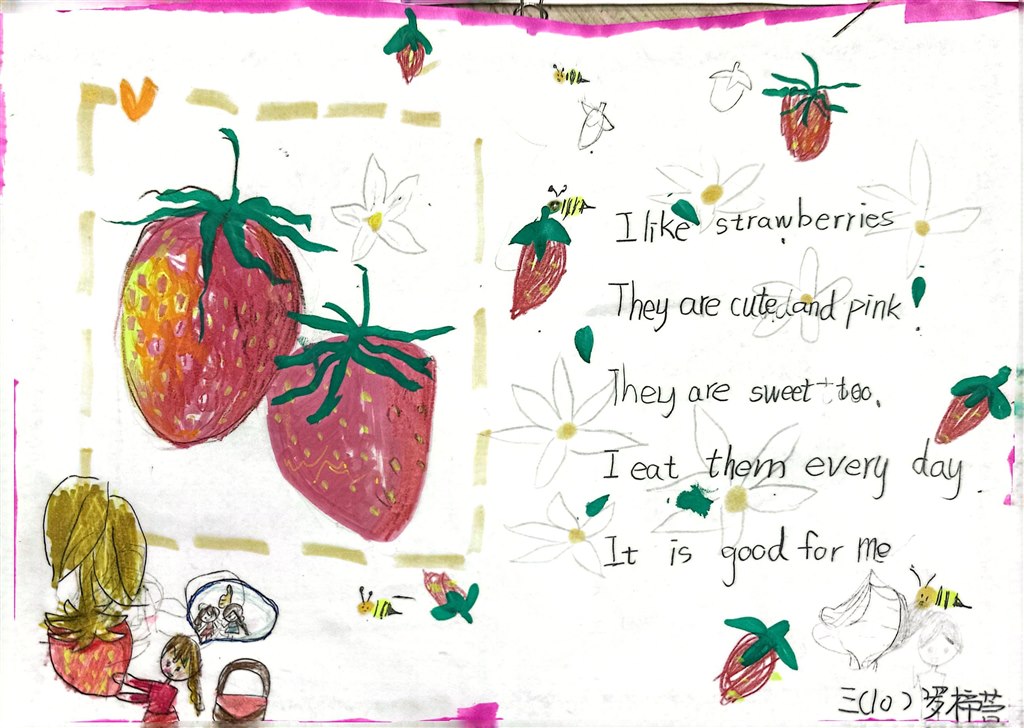 I like strawberries
They are cute and pink
They are sweet too.
I eat them every day
It is good for me
三(10) 罗梓萱